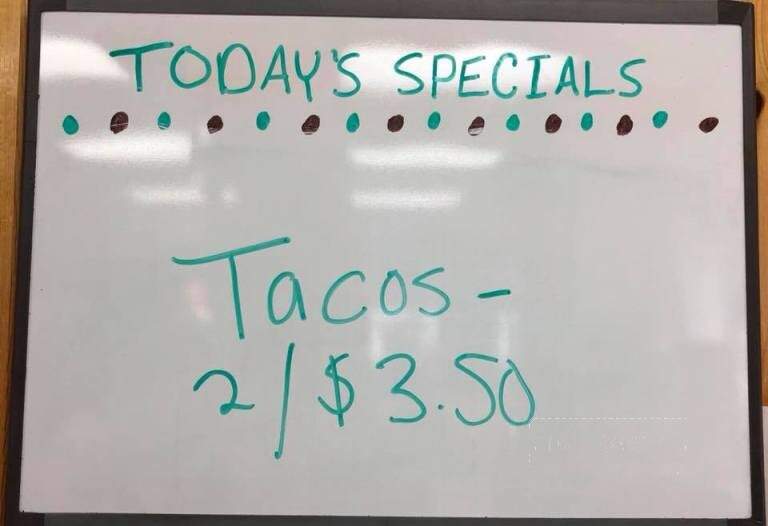 TODAY'S SPECIALS
Tacos -
2/$3.50